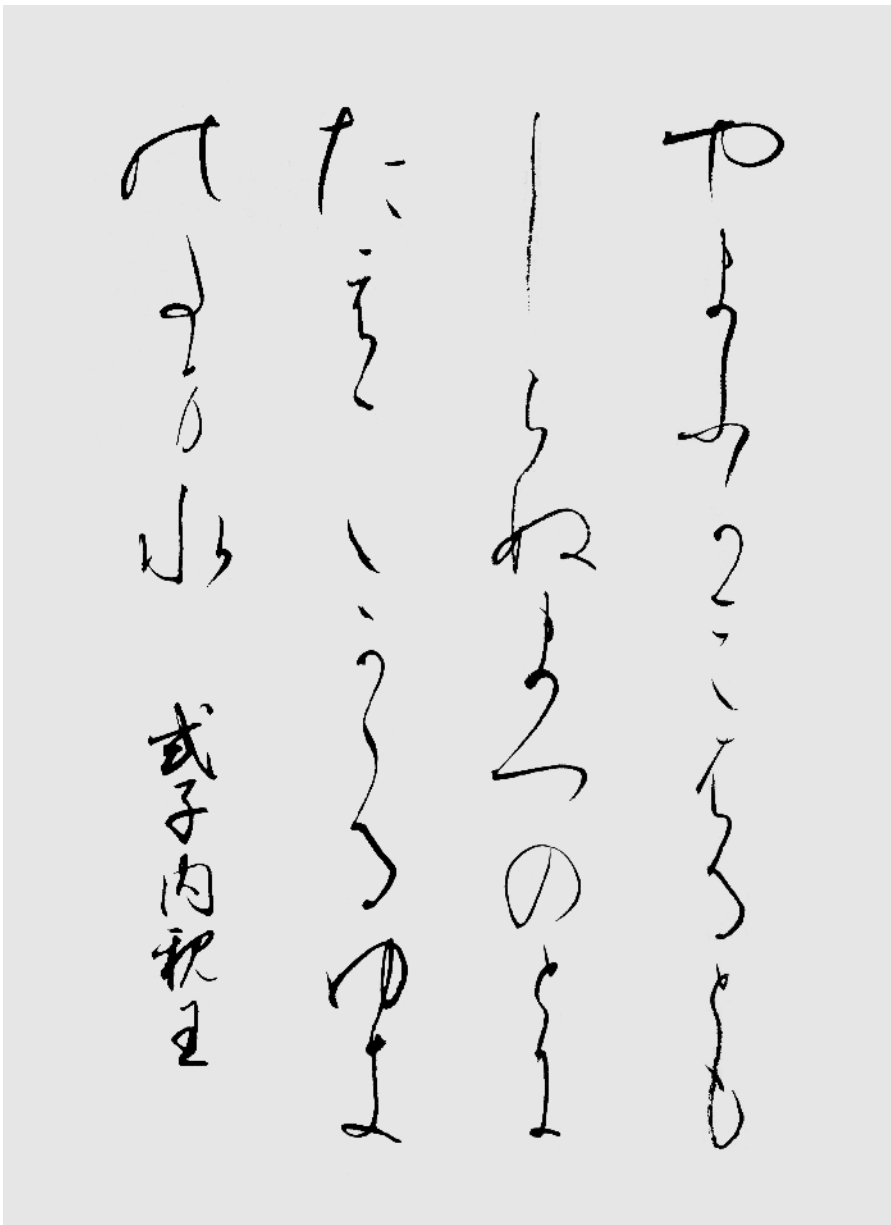 やまふかみはるとも
しらぬまつのとに
たえ〲かゝるゆき
のたま水　式子内親王